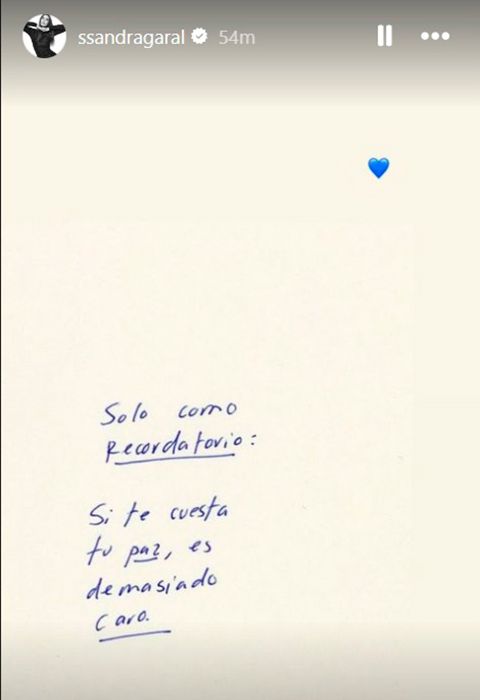 ssandragaral 54m
Solo como
Recordatorio:
Si te cuesta
tu paz, es
demasiado
caro.